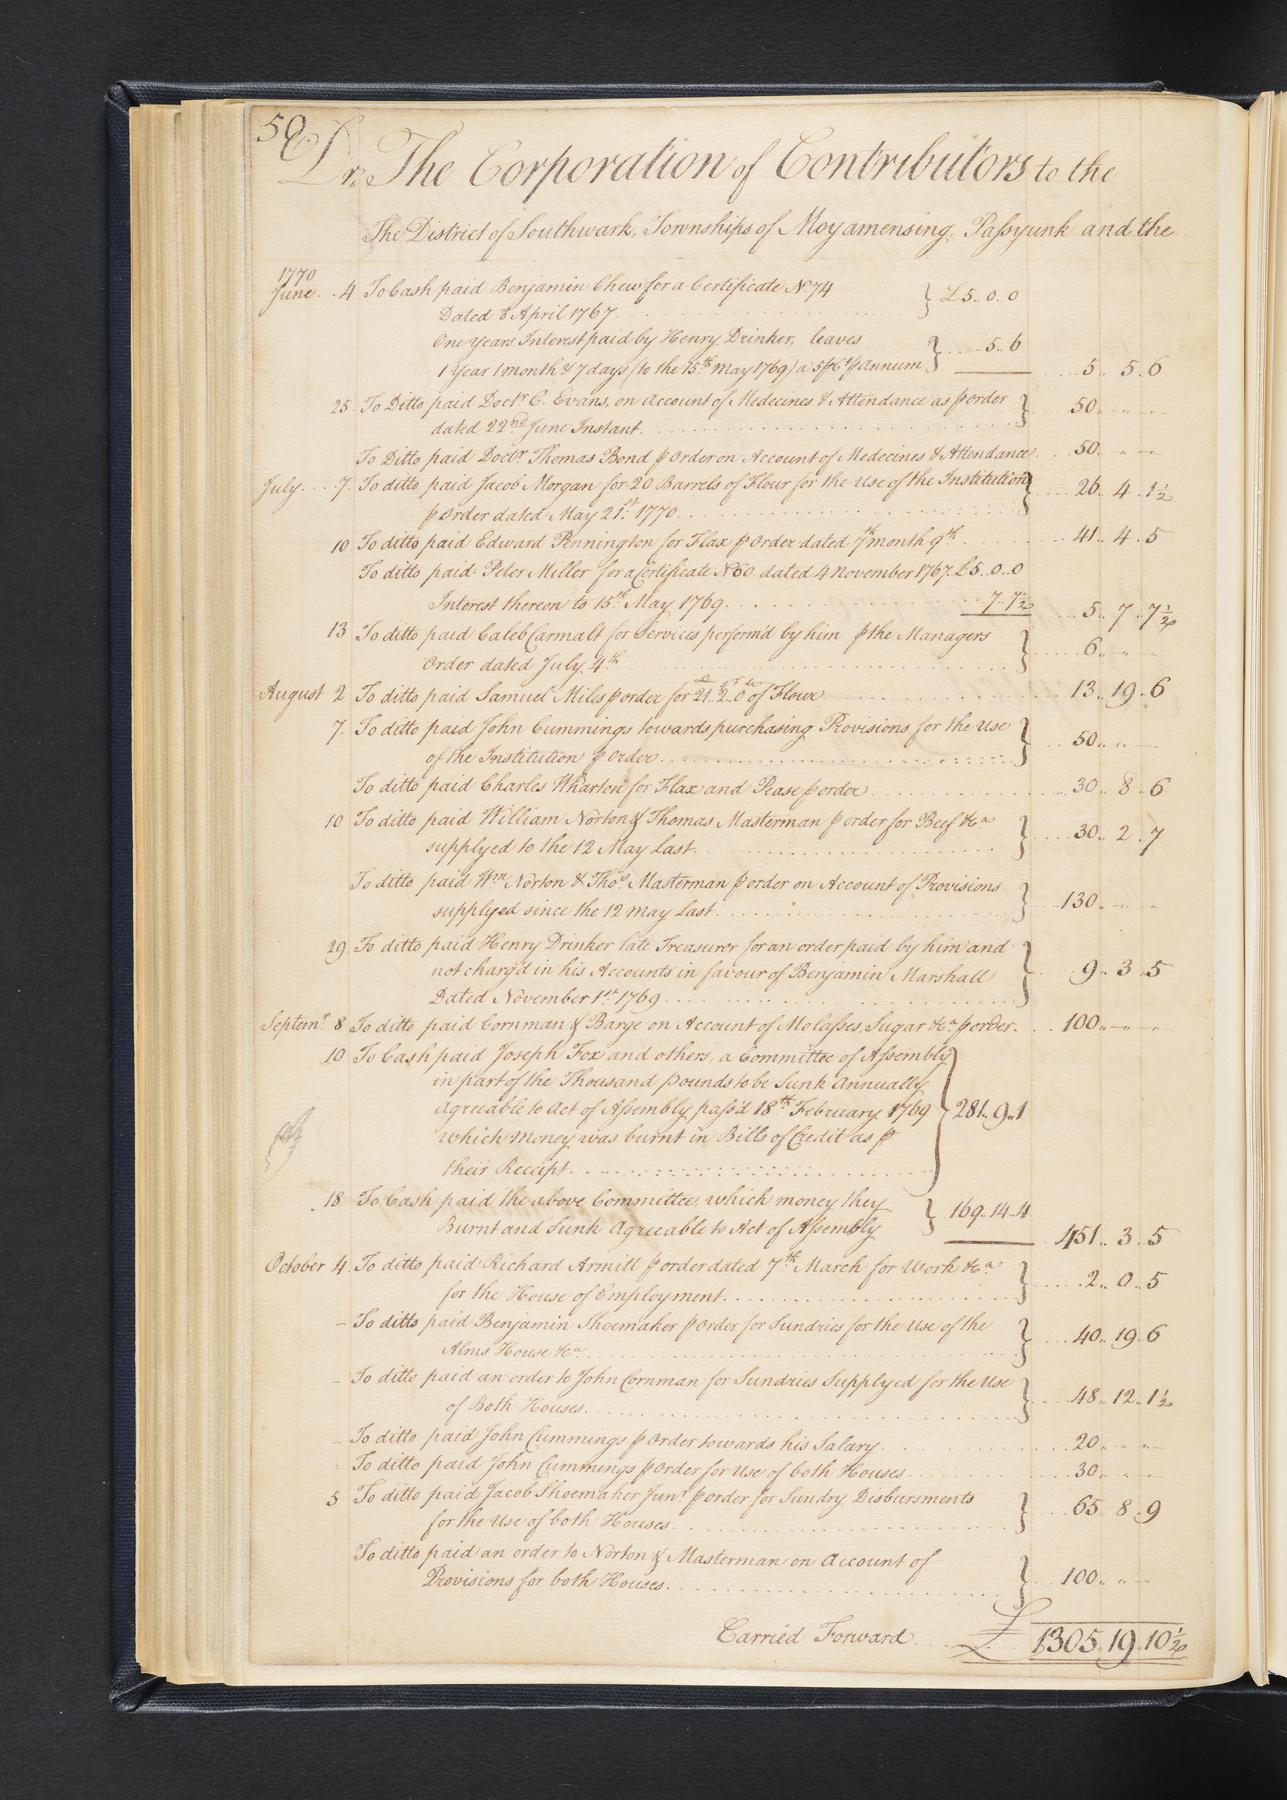 50
Dr. The Corporation of Contributors to the
The District of Southwark, Townships of Moyamensing, Passyunk and the
1770
June 4 To Cash paid Benjamin Chew for a Certificate No 74 } £5..0..0
Dated 8 April 1767
One Years Interest paid by Henry Drinker, leaves } 5..6
1 Year 1 month & 7 days (to the 15th May 1769) a 5 ⅌ Ct ⅌ annum 5.. 5.. 6
25 To Ditto paid Doctr C. Evans, on account of Medecines & Attendance as ⅌ order } 50.. " —
dated 22nd June Instant
To Ditto paid Doctr Thomas Bond ⅌ order on Account of Medecines & Attendance 50.. " —
July 7 To ditto paid Jacob Morgan for 20 Barrels of Flour for the Use of the Institution } 26.. 4.. 1½
⅌ Order dated May 21st 1770
10 To ditto paid Edward Pennington for Flax ⅌ Order dated 7th month 9th 41.. 4.. 5
To ditto paid Peter Miller for a Certificate No 60 dated 4 November 1767. £5..0..0
Interest thereon to 15th May 1769 7..7½ 5.. 7.. 7½
13 To ditto paid Caleb Carmalt for Services perform'd by him ⅌ the Managers } 6.. " —
Order dated July 4th
August 2 To ditto paid Samuel Miles ⅌ order for 21..2..0 of Flour 13.. 19.. 6
7. To ditto paid John Cummings towards purchasing Provisions for the Use } 50.. " —
of the Institution ⅌ Order
To ditto paid Charles Wharton for Flax and Pease ⅌ order 30.. 8.. 6
10 To ditto paid William Norton & Thomas Masterman ⅌ order for Beef &ca } 30.. 2.. 7
supplyed to the 12 May Last
To ditto paid Wm Norton & Thos Masterman ⅌ order on Account of Provisions } 130.. — "
supplyed since the 12 May Last
29 To ditto paid Henry Drinker late Treasurer for an order paid by him and
not charg'd in his Accounts in favour of Benjamin Marshall } 9.. 3.. 5
Dated November 1st 1769
Septemr 8 To ditto paid Cornman & Barge on Account of Molasses, Sugar &ca ⅌ order 100.. — "
10 To Cash paid Joseph Fox and others, a Committee of Assembly
in part of the Thousand Pounds to be Sunk Annually
Agreeable to Act of Assembly pass'd 18th February 1769 } 281..9..1
which Money was burnt in Bills of Credit as ⅌
their Receipt
18 To Cash paid the above Committee, which money they } 169..14..4
Burnt and Sunk Agreeable to Act of Assembly 451.. 3.. 5
October 4 To ditto paid Richard Armitt ⅌ order dated 7th March for Work &ca } 2.. 0.. 5
for the House of Employment
– To ditto paid Benjamin Shoemaker ⅌ Order for Sundries for the Use of the } 40.. 19.. 6
Alms House &ca
– To ditto paid an order to John Cornman for Sundries Supplyed for the Use } 48.. 12.. 1½
of Both Houses
– To ditto paid John Cummings ⅌ Order towards his Salary 20.. " —
To ditto paid John Cummings ⅌ Order for Use of both Houses 30.. " —
5 To ditto paid Jacob Shoemaker Junr ⅌ order for Sundry Disbursments } 65.. 8.. 9
for the Use of both Houses
To ditto paid an order to Norton & Masterman on Account of } 100.. " —
Provisions for both Houses
Carried Forward £ 1305..19..10½